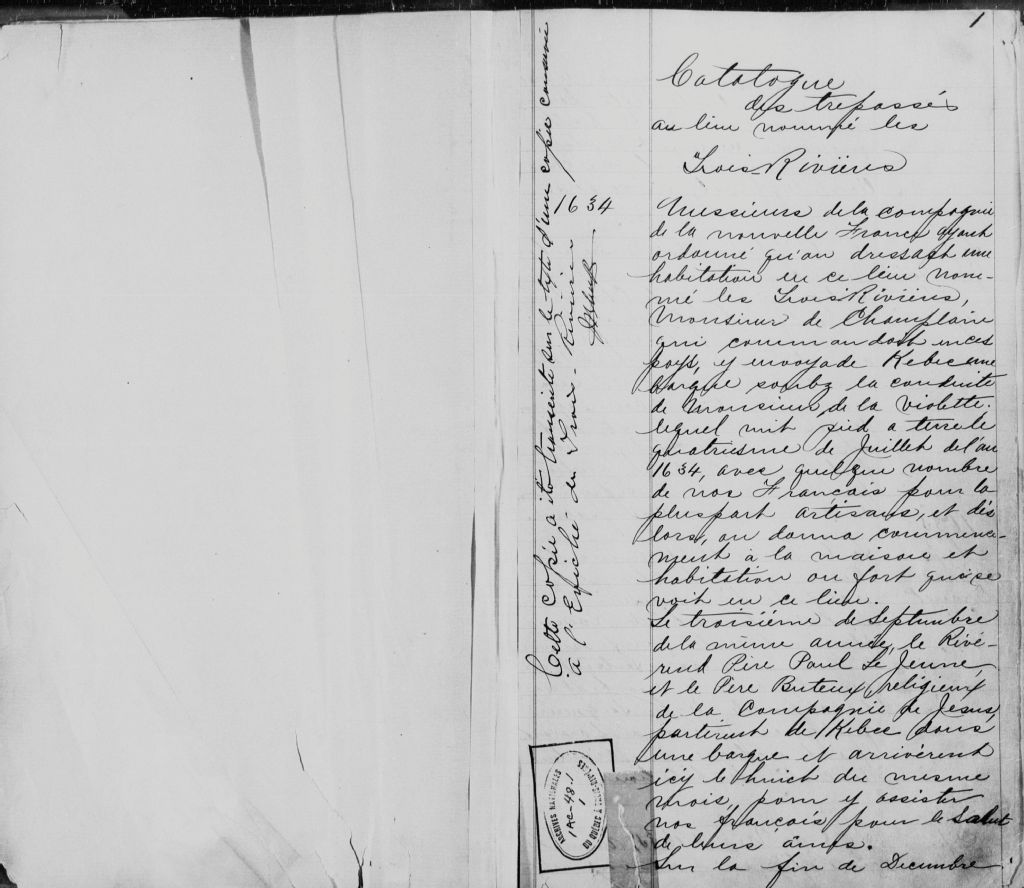 1
Catalogue
des trepassés
au lieu nommé les
Trois-Rivières
1634
Messieurs de la compagnie
de la nouvelle France ayant
ordonné qu'on dressast une
habitation en ce lieu nom-
mé les Trois Rivières,
Monsieur de Champlain
qui commandoit en ces
pays, y envoya de Kebec une
barque soubz la conduite
de Monsieur de la Violette.
lequel mit pied a terre le
quatriesme de Juillet de l'an
1634, avec quelque nombre
de nos Français pour la
pluspart artisans, et dès
lors, on donna commence-
ment à la maison et
habitation ou fort qui se
voit en ce lieu.
Le troisième de Septembre
de la même année, le Révé-
rend Père Paul Le Jeune,
et le Père Buteux, religieux
de la Compagnie de Jesus,
partirent de Kebec dans
une barque et arrivèrent
icy le huict du mesme
mois, pour y assister
nos français pour le salut
de leurs âmes.
Sur la fin de Decembre
Cette copie a été transcrite sur le texte d'une copie conservée
à l'Evêché des Trois-Rivières
ARCHIVES NATIONALES
DU QUÉBEC À TROIS-RIVIÈRES
1